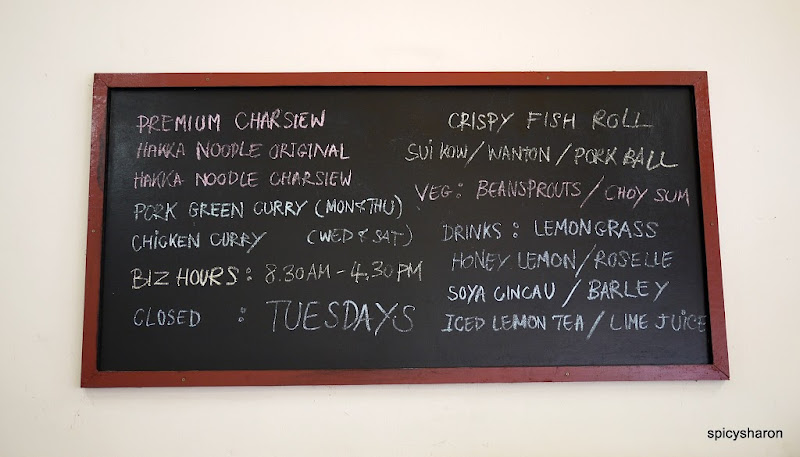 PREMIUM CHARSIEW
HAKKA NOODLE ORIGINAL
HAKKA NOODLE CHARSIEW
PORK GREEN CURRY (MON & THU)
CHICKEN CURRY (WED & SAT)
BIZ HOURS : 8.30AM - 4.30PM
CLOSED : TUESDAYS
CRISPY FISH ROLL
SUI KOW / WANTON / PORK BALL
VEG : BEANSPROUTS / CHOY SUM
DRINKS : LEMONGRASS
HONEY LEMON / ROSELLE
SOYA CINCAU / BARLEY
ICED LEMON TEA / LIME JUICE
spicysharon